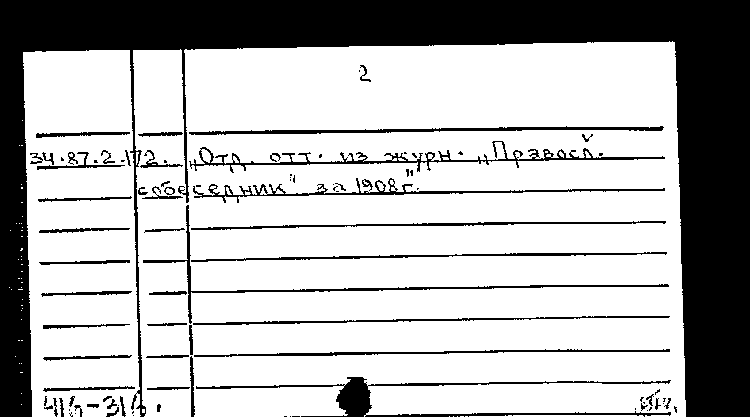 2
34.87.2.172. „Отд. отт. из журн. „Правосл.
собеседник" за 1908г."
416-316.